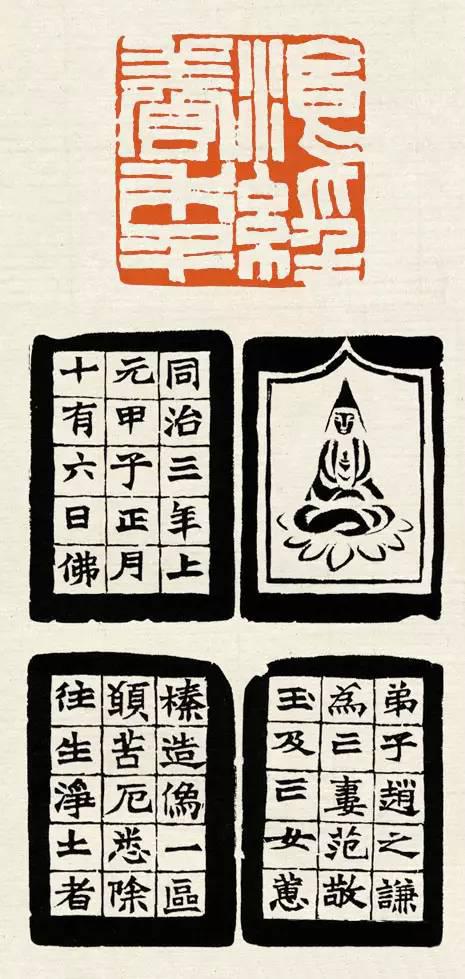 湌經
養年
同治三年上
元甲子正月
十有六日佛
弟子趙之謙
爲亡妻范敬
玉及亡女蕙
榛造像一區
願苦厄悉除
往生淨土者